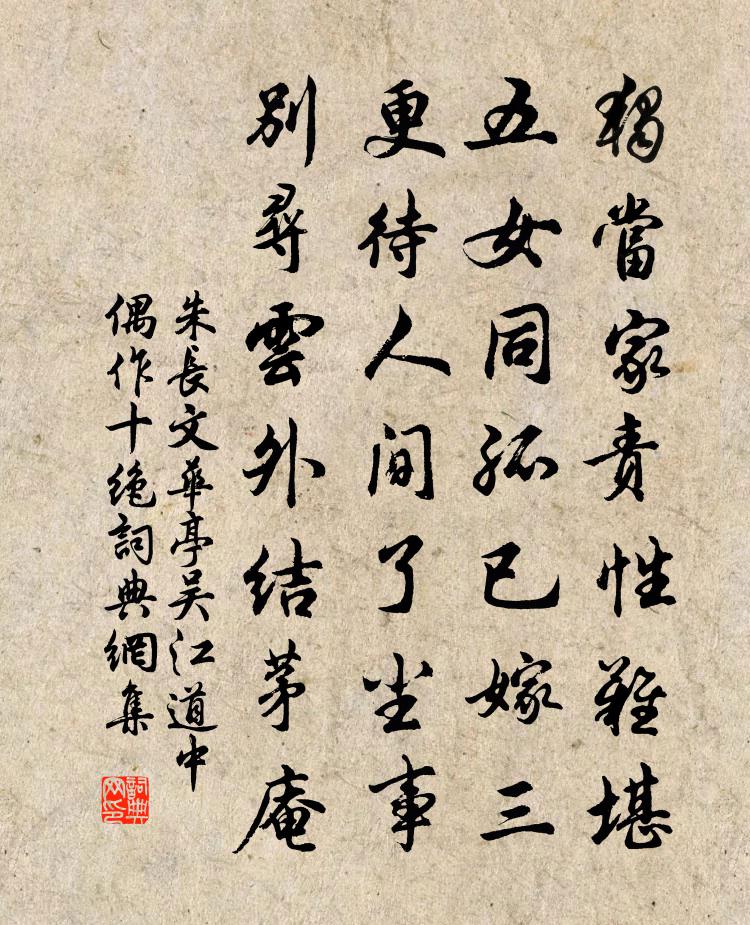 獨當家責性難堪
五女同孤已嫁三
更待人間了尘事
別尋雲外結茅庵
朱長文華亭吴江道中
偶作十絶詞典網集
詞典
网印